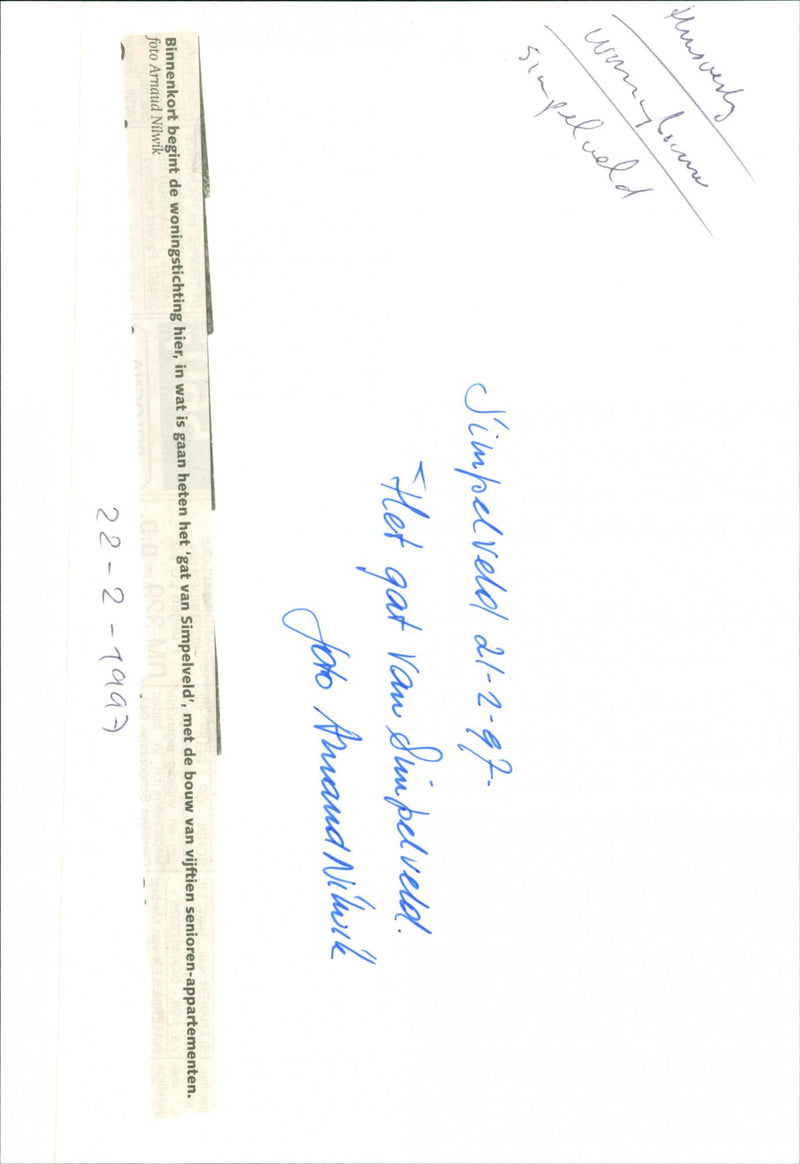 woningbouw
simpelveld
Simpelveld 21-2-97.
"Het gat van Simpelveld.
foto Arnaud Nilwik
Binnenkort begint de woningstichting hier, in wat is gaan heten het 'gat van Simpelveld', met de bouw van vijftien senioren-appartementen.
foto Arnaud Nilwik
22-2-1997